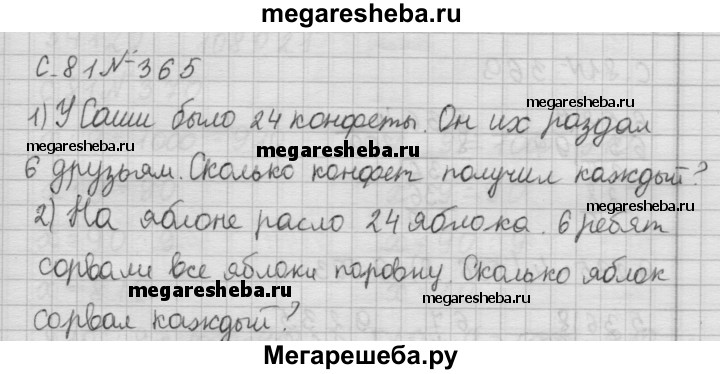 megaresheba.ru
С.81 № 365
1) У Саши было 24 конфеты. Он их раздал
megaresheba.ru
megaresheba.ru
6 друзьям. Сколько конфет получил каждый?
2) На яблоне расло 24 яблока. 6 ребят
megaresheba.ru
сорвали все яблоки поровну. Сколько яблок
megaresheba.ru
megaresheba.ru
сорвал каждый?
Мегарешеба.ру